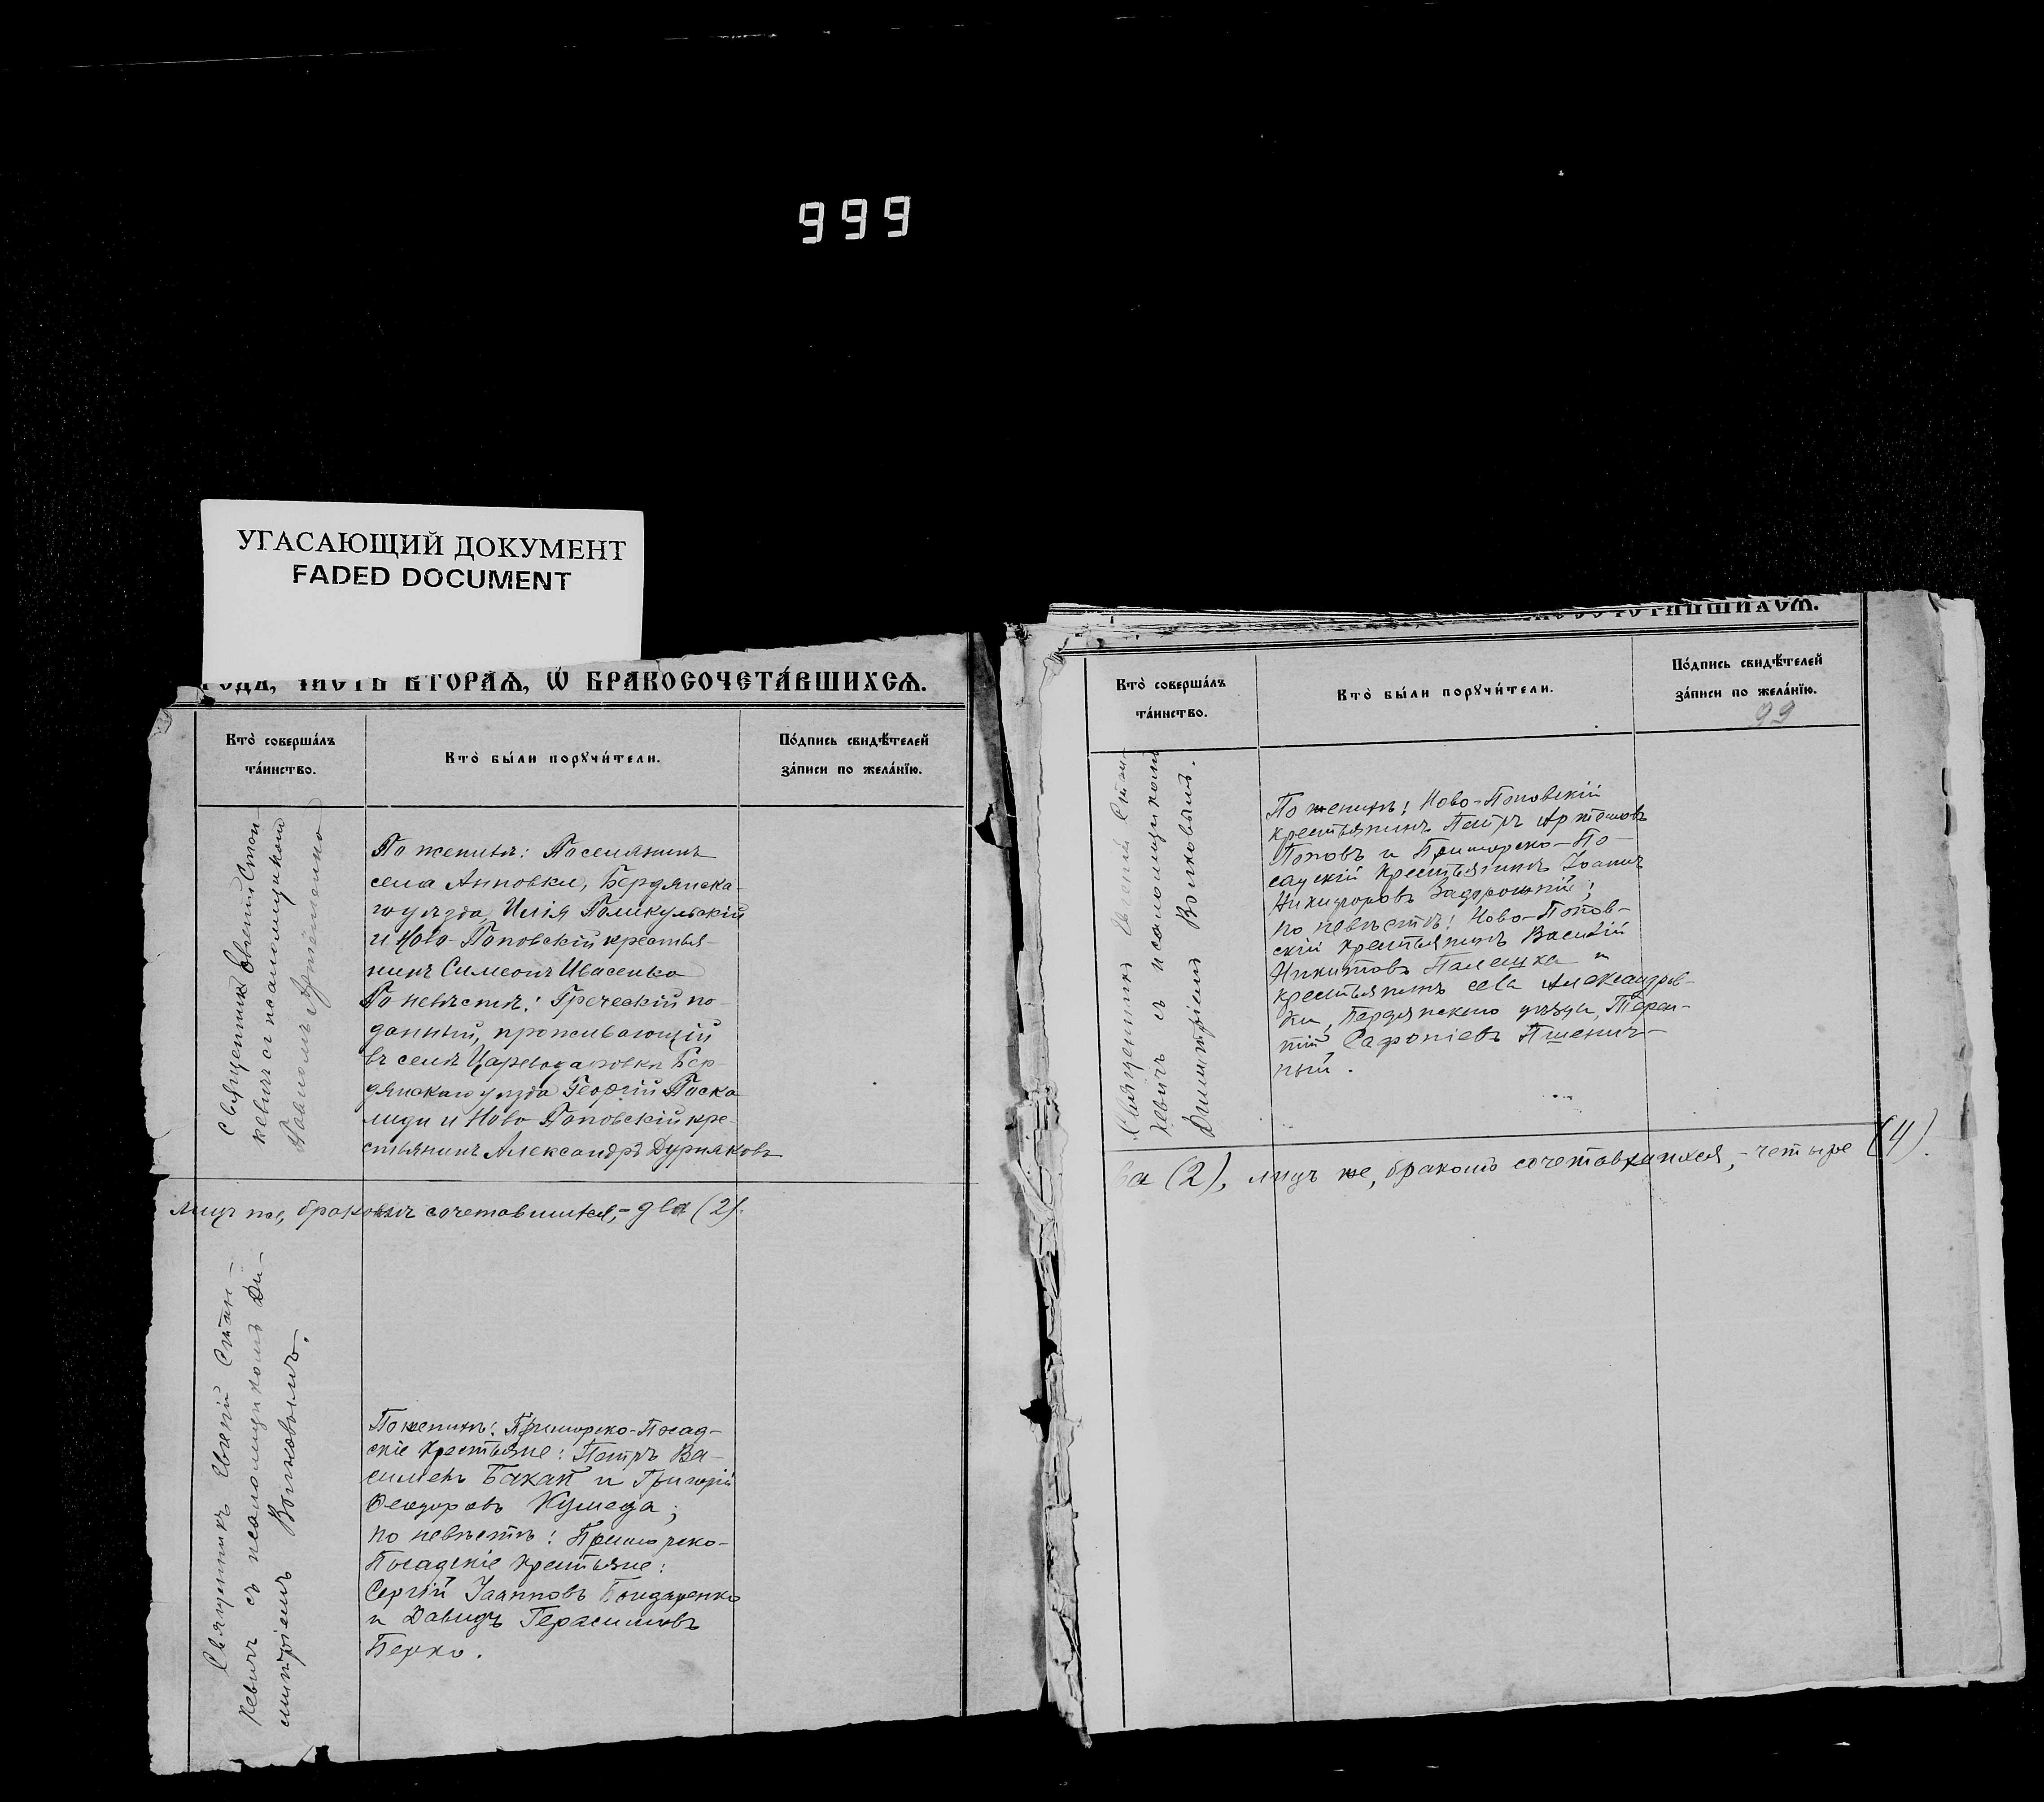 999
УГАСАЮЩИЙ ДОКУМЕНТ
FADED DOCUMENT
ГОДА, ЧАСТЬ ВТОРАѦ, Ѡ БРАКОСОЧЕТА́ВШИХСѦ.
Кто̀ соверша́лъ
та́инство.
Кто̀ бы́ли порꙋчи́тели.
По́дпись свидѣ́телей
за́писи по жела́нїю.
Священникъ Евгений Стан-
кевичъ съ псаломщикомъ
Павломъ
По женихѣ: Поселянинъ
села Анновки, Бердянска-
го уѣзда, Илія Поликульскій
и Ново-Поповскій крестья-
нинъ Симеонъ Ивасенко
По невѣстѣ: Греческій по-
данный, проживающій
въ селѣ Цареводаровки Бер-
дянскаго уѣзда Георгій Паска
лиди и Ново Поповскій кре-
стьянинъ Александръ Дурняковъ
лицъ же, бракомъ сочетавшихся,- два (2).
Священникъ Евгеній Стан-
кевичъ съ псаломщикомъ Ди-
митріемъ Волковымъ.
По женихѣ: Приморско-Посад-
скіе крестьяне: Петръ Ва-
сильевъ Бакай и Григорій
Ѳеодоровъ Кумеда;
по невѣстѣ: Приморско-
Посадскіе крестьяне:
Сергій Іоанновъ Бондаренко
и Давидъ Герасимовъ
Берко.
Кто̀ соверша́лъ
та́инство.
Кто̀ бы́ли порꙋчи́тели.
По́дпись свидѣ́телей
за́писи по жела́нїю.
99
Священникъ Евгеній Стан-
кевичъ съ псаломщикомъ
Димитріемъ Волковымъ.
По женихѣ: Ново-Поповскій
крестьянинъ Петръ Артемовъ
Поповъ и Приморско-По-
садскій крестьянинъ Іоаннъ
Никифоровъ Задорожній;
по невѣстѣ: Ново-Попов-
скій крестьянинъ Василій
Никитовъ Палешка и
крестьянинъ села Александров-
ки, Бердянскаго уѣзда, Терен-
тій Софроніевъ Пшенич-
ный.
ва (2), лицъ же, бракомъ сочетавшихся,- четыре (4).